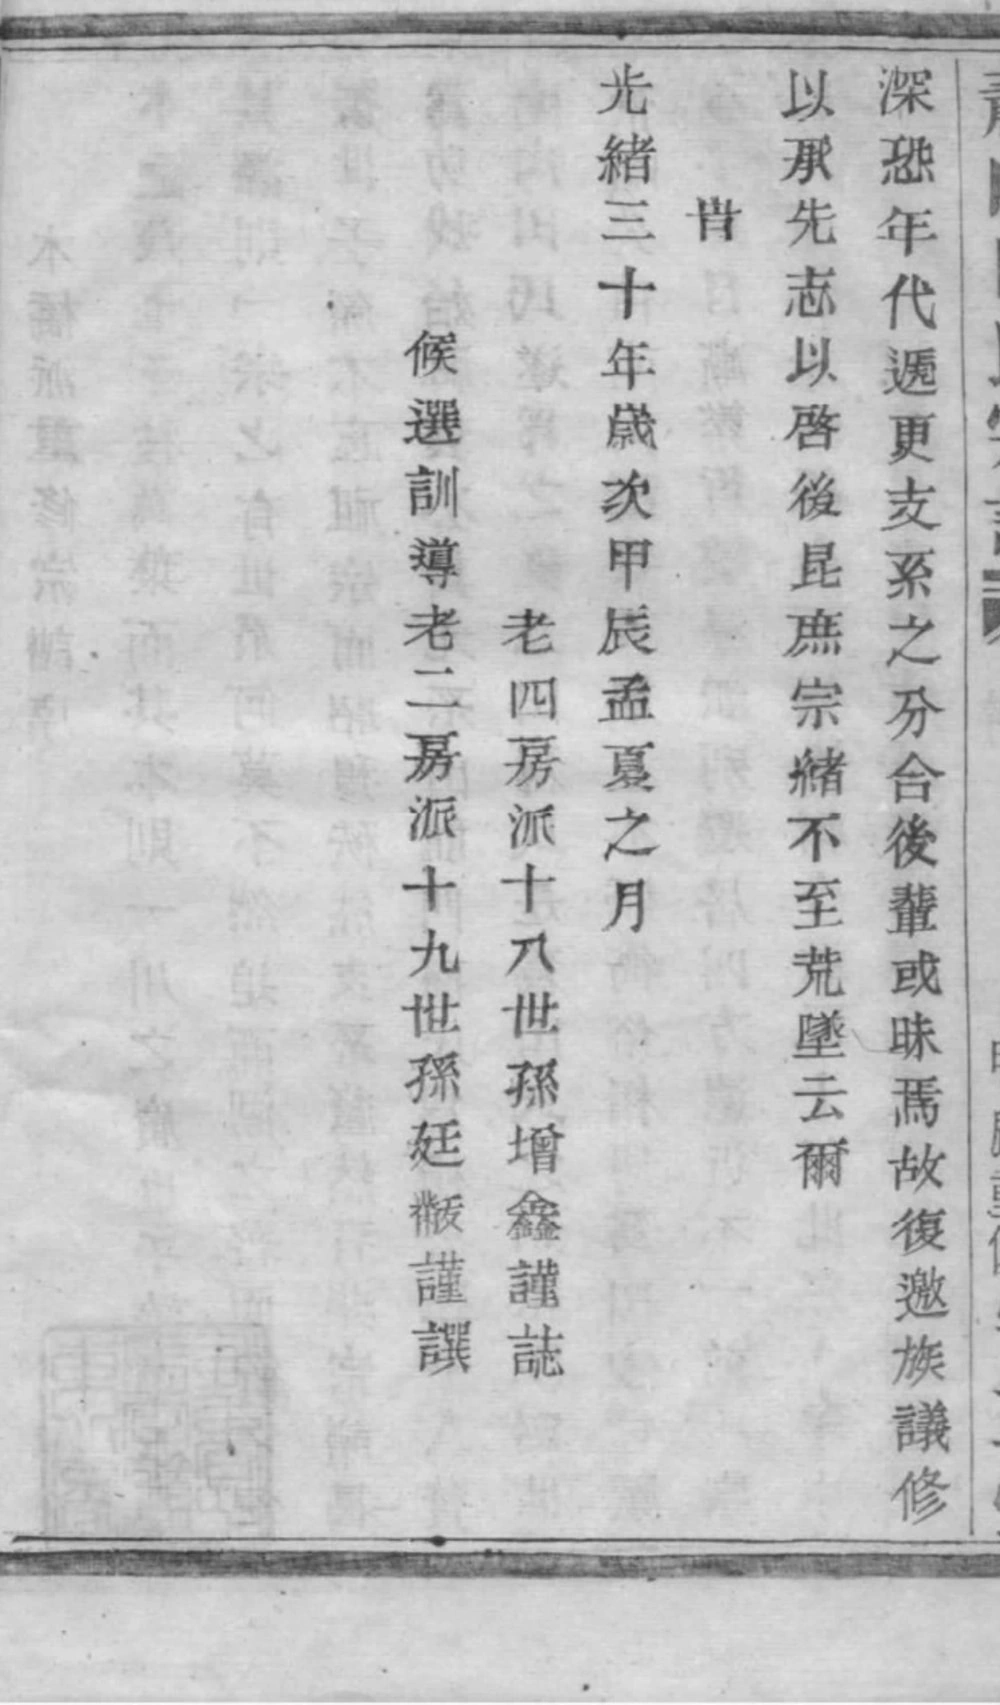 深恐年代遞更支系之分合後輩或昧焉故復邀族議修
以承先志以啓後昆庶宗緒不至荒墜云爾
旹
光緒三十年歲次甲辰孟夏之月
老四房派十八世孫增鑫謹誌
候選訓導老二房派十九世孫廷黻謹譔